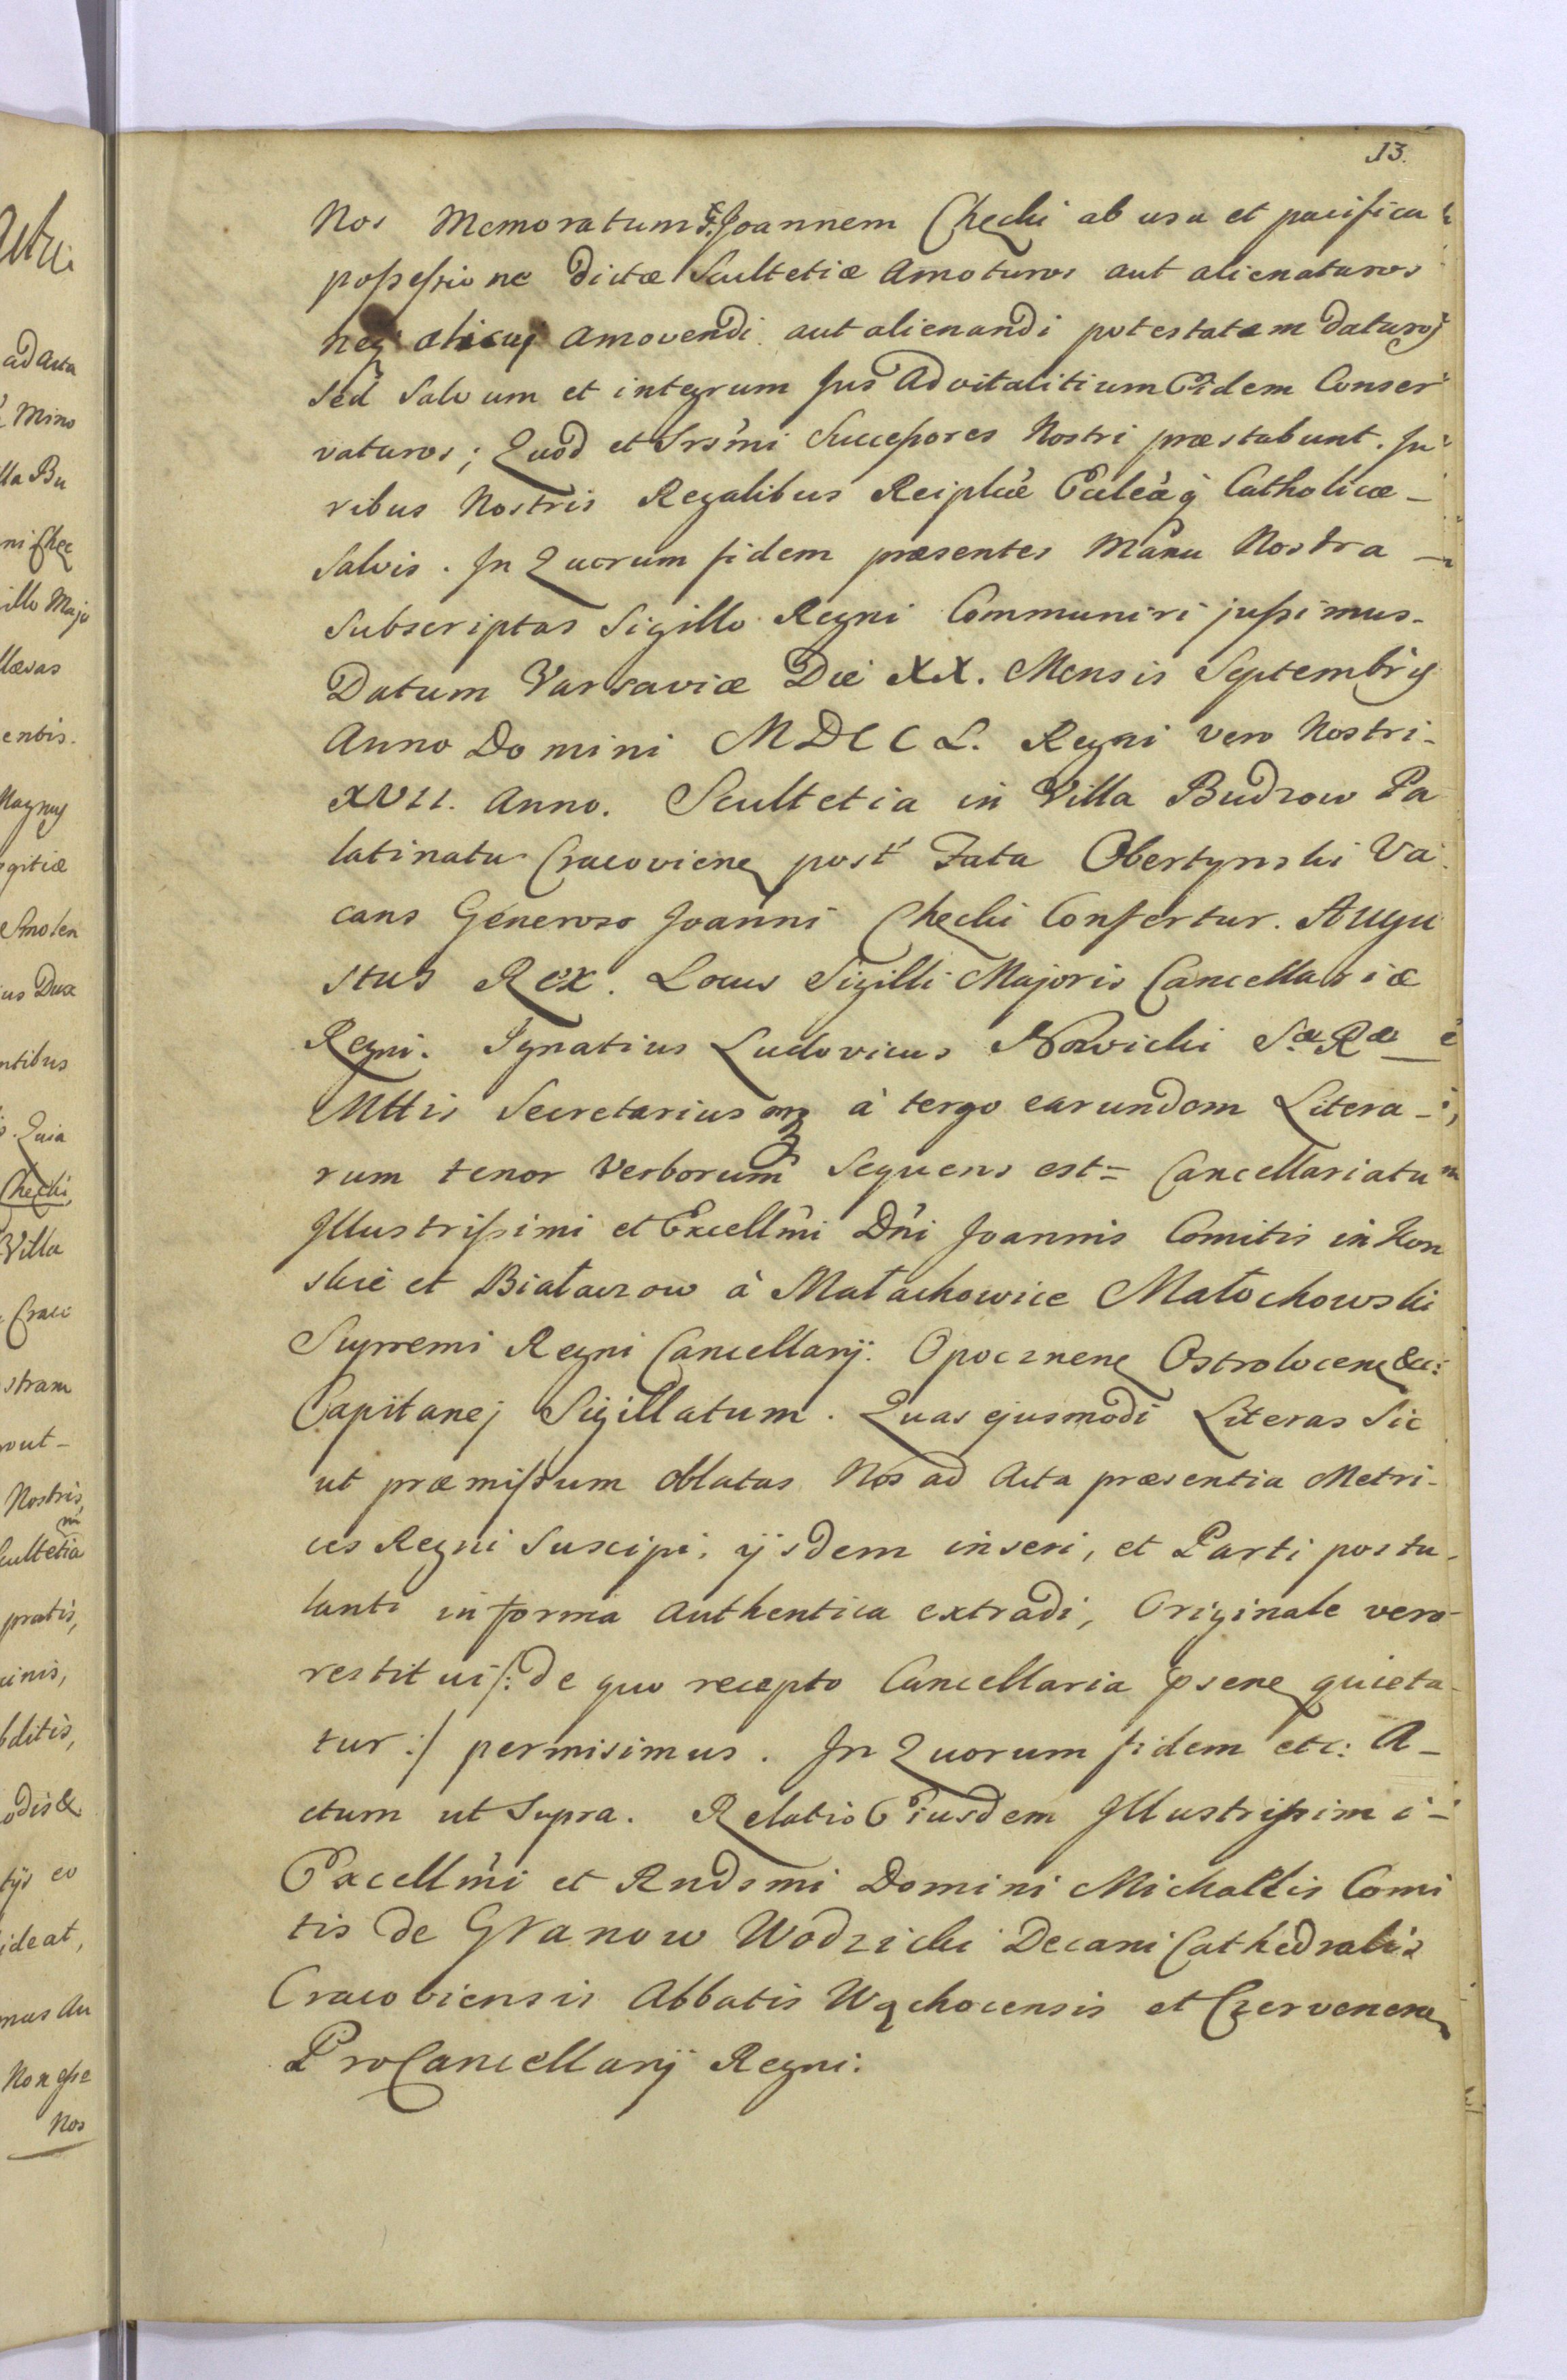 13.
Nos Memoratum G. Joannem Checki ab usu et pacifica
possessione dictæ Scultetiæ Amoturos aut alienaturos
neq; alicuj amovendi aut alienandi potestatem daturos
sed salvum et integrum Jus Advitalitium Eidem Conser
vaturos; Quod et Srsmi Successores Nostri præstabunt. Ju
ribus Nostris Regalibus Reiplcæ Eccleæq; Catholicæ -
Salvis. In Quorum fidem præsentes Manu Nostra -
Subscriptas Sigillo Regni Communiri jussimus.
Datum Varsaviæ Die XX. Mensis Septembris
Anno Domini MDCCL. Regni vero Nostri -
XVII. Anno. Scultetia in Villa Budzow Pa
latinatu Cracovien post Fata Obertynski Va
cans Generoso Joanni Checki Confertur. Augu
stus Rex. Locus Sigilli Majoris Cancellariæ
Regni. Ignatius Ludovicus Nowicki Sæ Ræ
Mttis Secretarius mp à tergo earundem Litera -
rum tenor Verborum Sequens est = Cancellariatum
Illustrissimi et Excellmi Dni Joannis Comitis in Kon
skie et Białaczow à Małachowice Małachowski
Supremi Regni Cancellarij. Opocznen Ostrolocen &c:
Capitanej Sigillatum. Quas ejusmodi Literas Sic
ut præmissum oblatas Nos ad Acta præsentia Metri -
ces Regni Suscipi, ijsdem inseri, et Parti postu -
lanti in forma Authentica extradi, Originale vero -
restitui /: de quo recepto Cancellaria psene quieta -
tur :/ permisimus. In Quorum fidem etc: A -
ctum ut Supra. Relatio Eiusdem Illustrissimi -
Excellmi et Rndsmi Domini Michaelis Comi
tis de Granow Wodzicki Decani Cathedralis
Cracoviensis Abbatis Wąchocensis et Czervenen
ProCancellarij Regni: